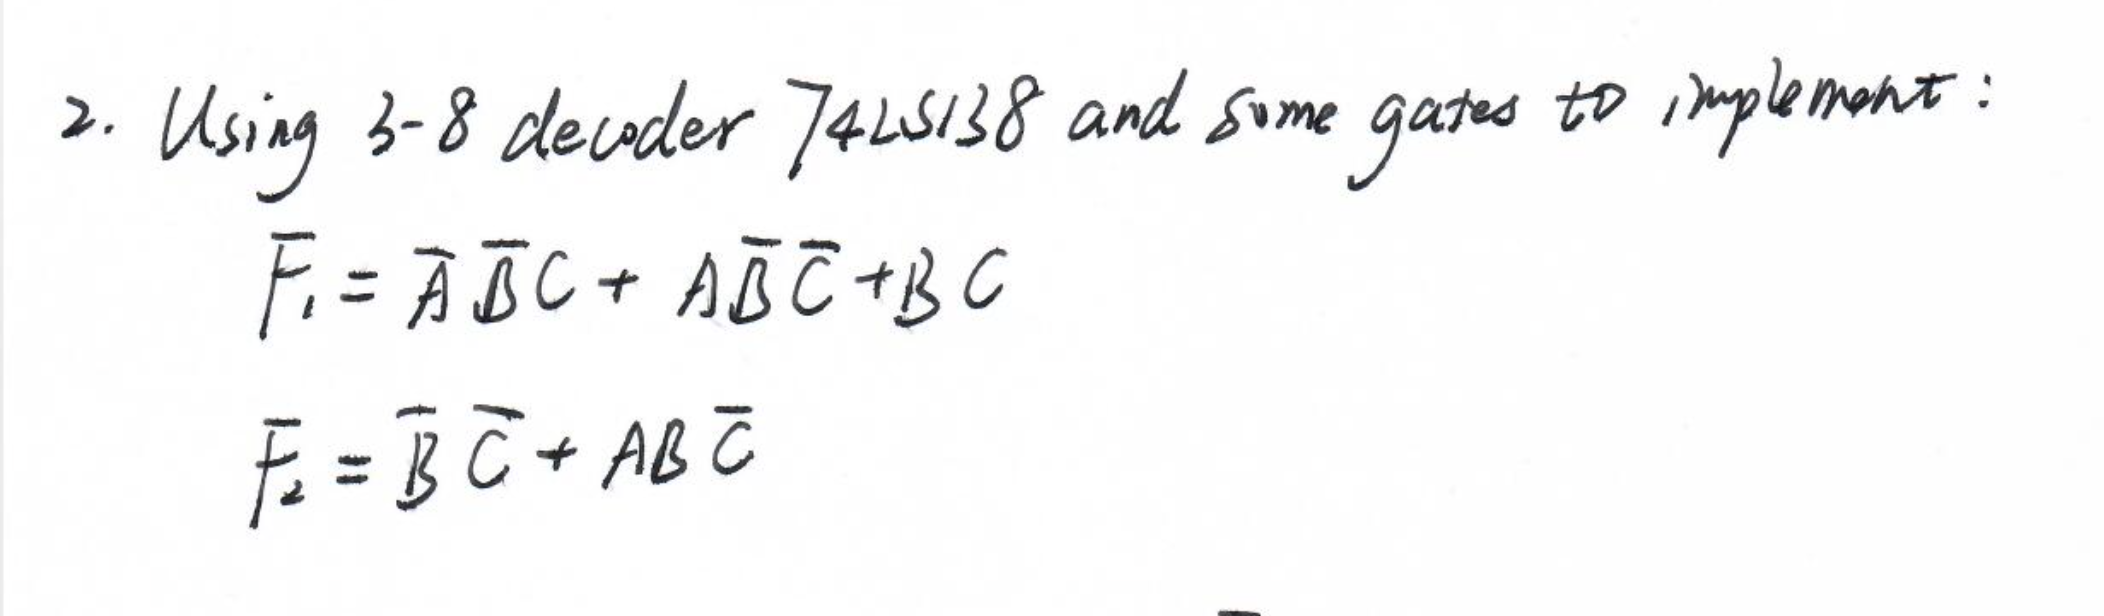 2. Using 3-8 decoder 74LS138 and some gates to implement:
F̅₁ = A̅ B̅ C + A B̅ C̅ + B C
F̅₂ = B̅ C̅ + A B C̅